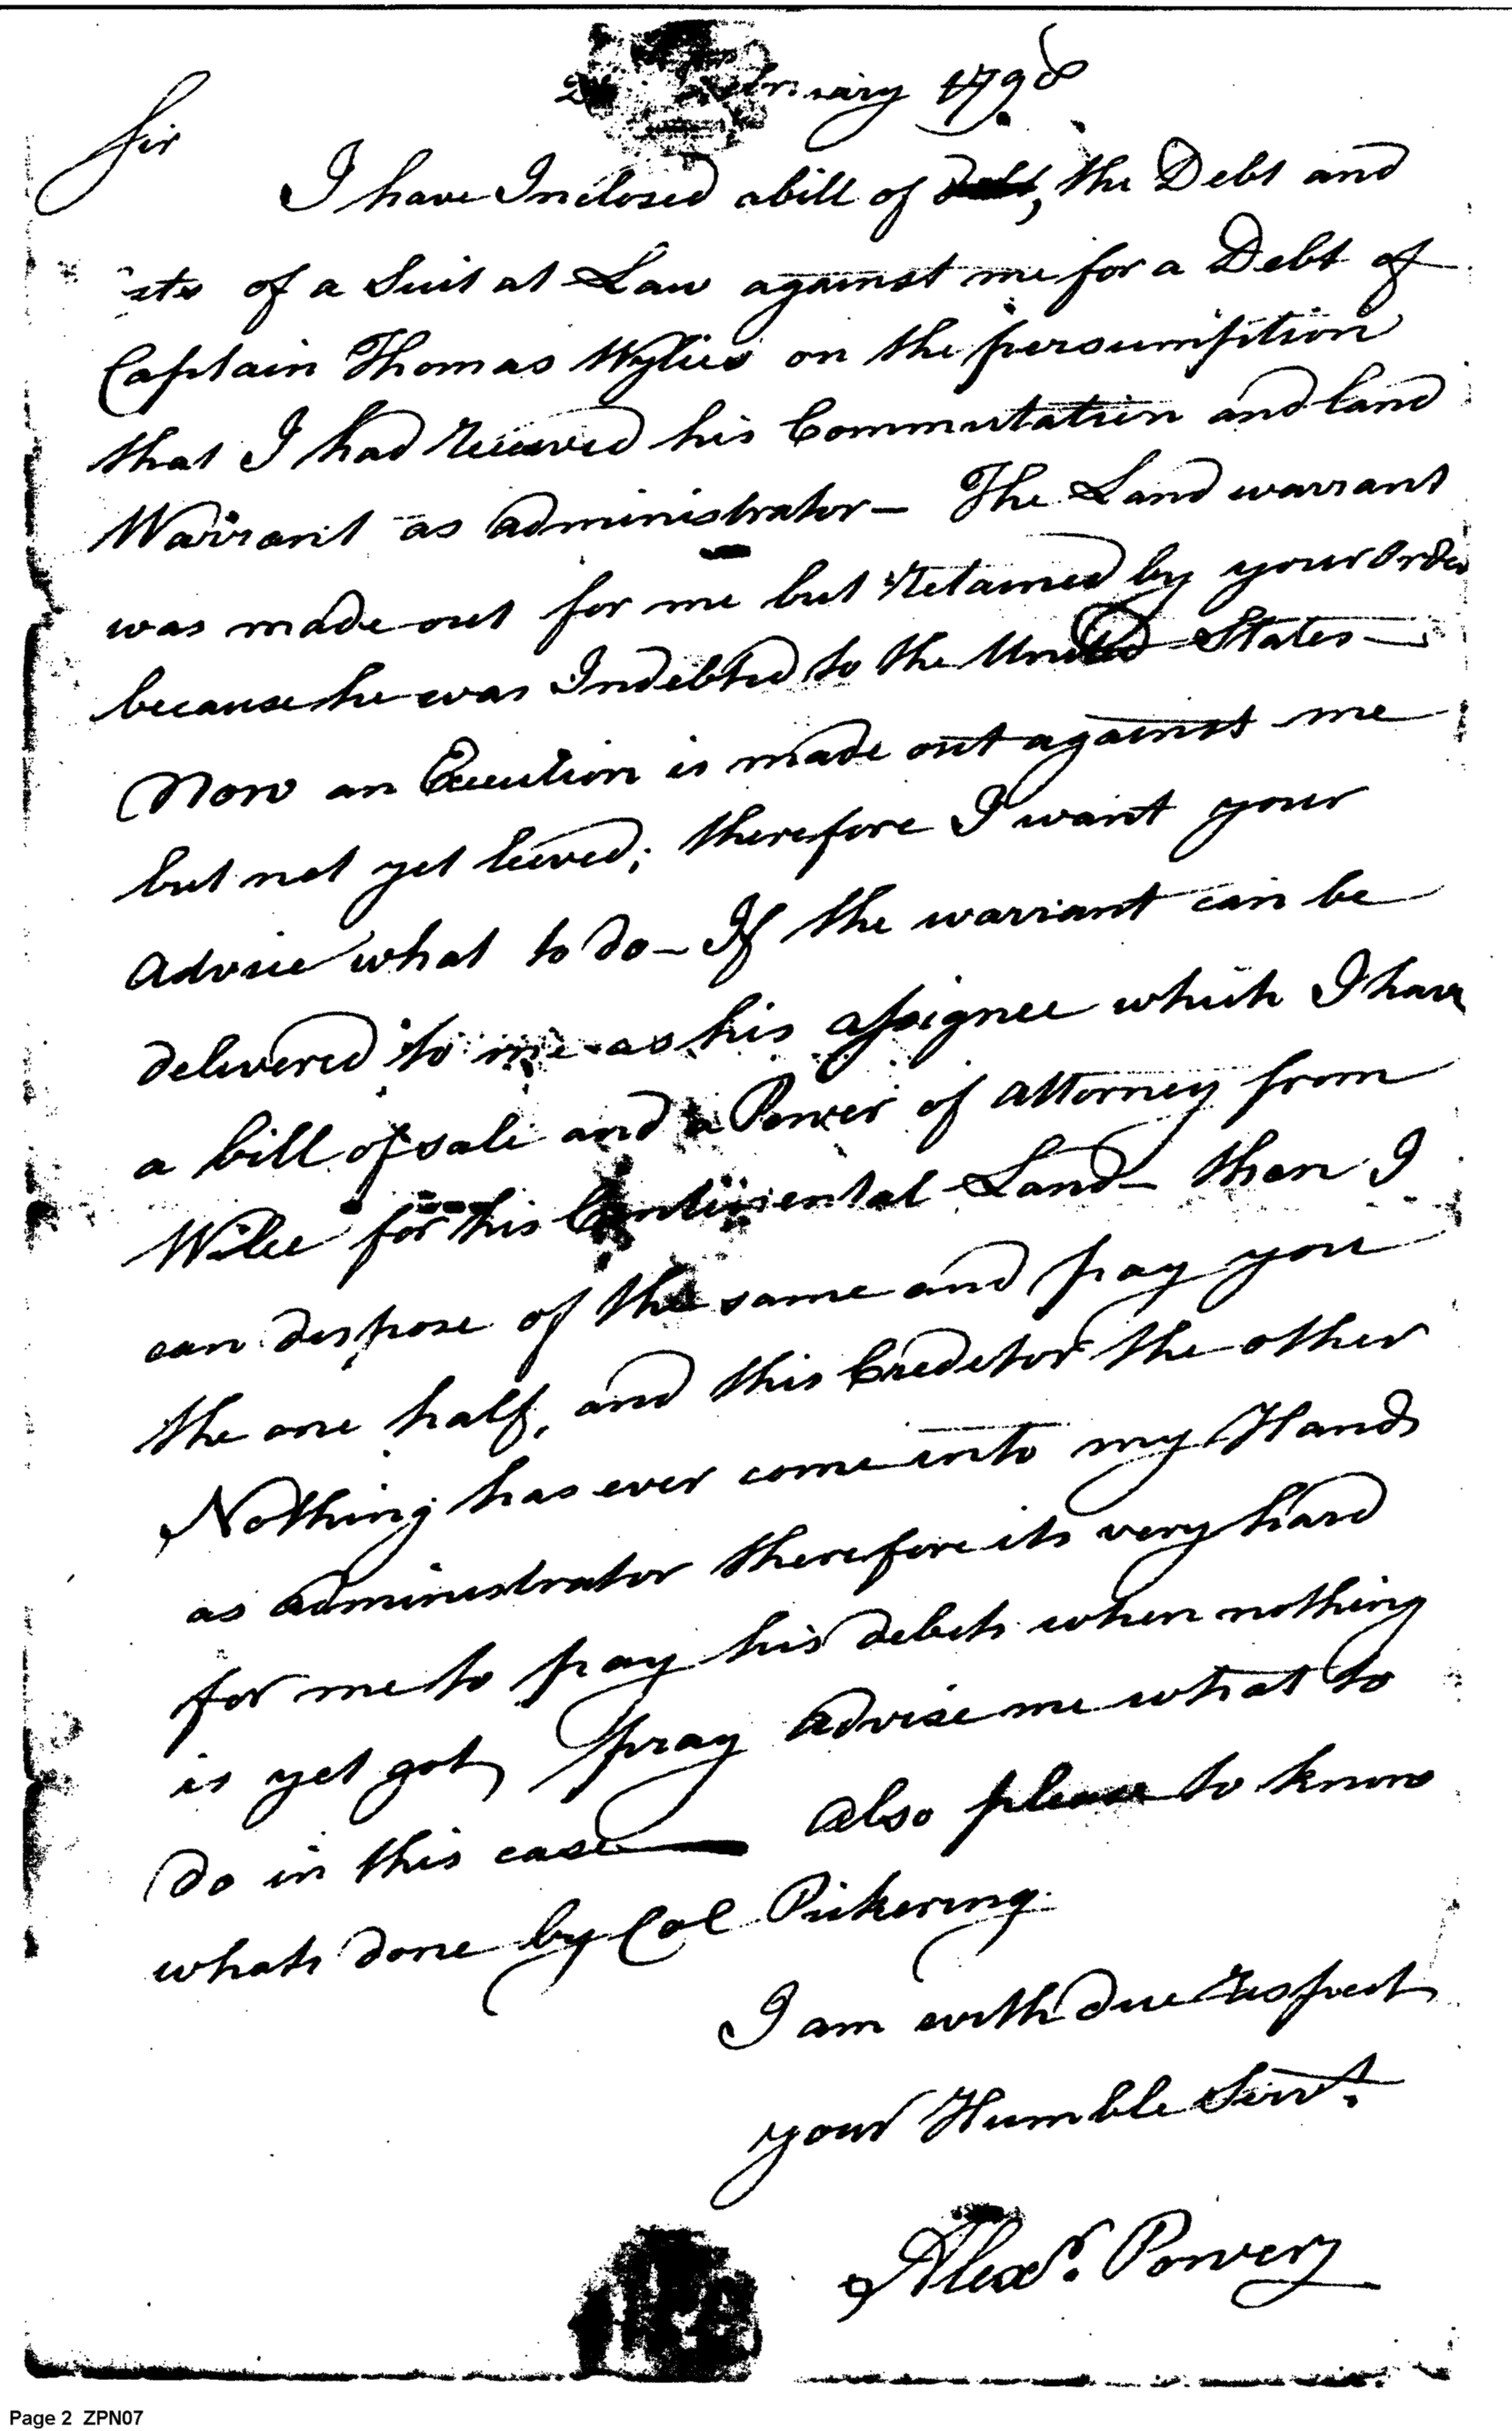 February 1798
Sir
I have Inclosed a bill of debt, the Debt and
of a Suit at Law against me for a Debt of
Captain Thomas Wylies on the persumption
that I had received his Commutation and land
Warrant as administrator — The Land warrant
was made out for me but retained by your Order
because he was Indebted to the United States —
Now an Execution is made out against me
but not yet leived; therefore I want your
advice what to do — If the warrant can be
delivered to me as his assignee which I have
a bill of sale and a Power of attorney from
Wilee for his Continental Land — then I
can dispose of the same and pay you
the one half, and this Creditor the other
Nothing has ever come into my Hands
as administrator therefore its very hard
for me to pay his debets when nothing
is yet got, pray advise me what to
do in this case — also please to know
whats done by Col Pickering.
I am with due respect
your Humble Servt.
Alexr. Power
Page 2 ZPN07